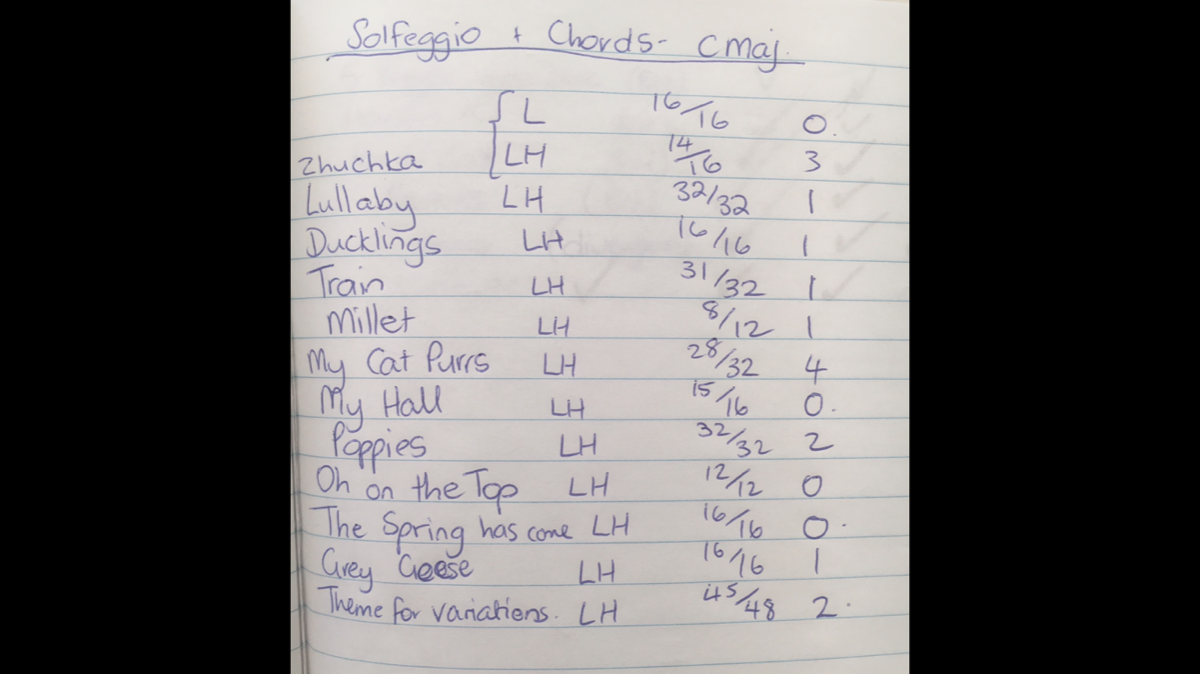 Solfeggio + Chords - C maj.
L 16/16 0.
Zhuchka LH 14/16 3
Lullaby LH 32/32 1
Ducklings LH 16/16 1
Train LH 31/32 1
Millet LH 8/12 1
My Cat Purrs LH 28/32 4
My Hall LH 15/16 0.
Poppies LH 32/32 2
Oh on the Top LH 12/12 0
The Spring has come LH 16/16 0.
Grey Geese LH 16/16 1
Theme for variations. LH 45/48 2.